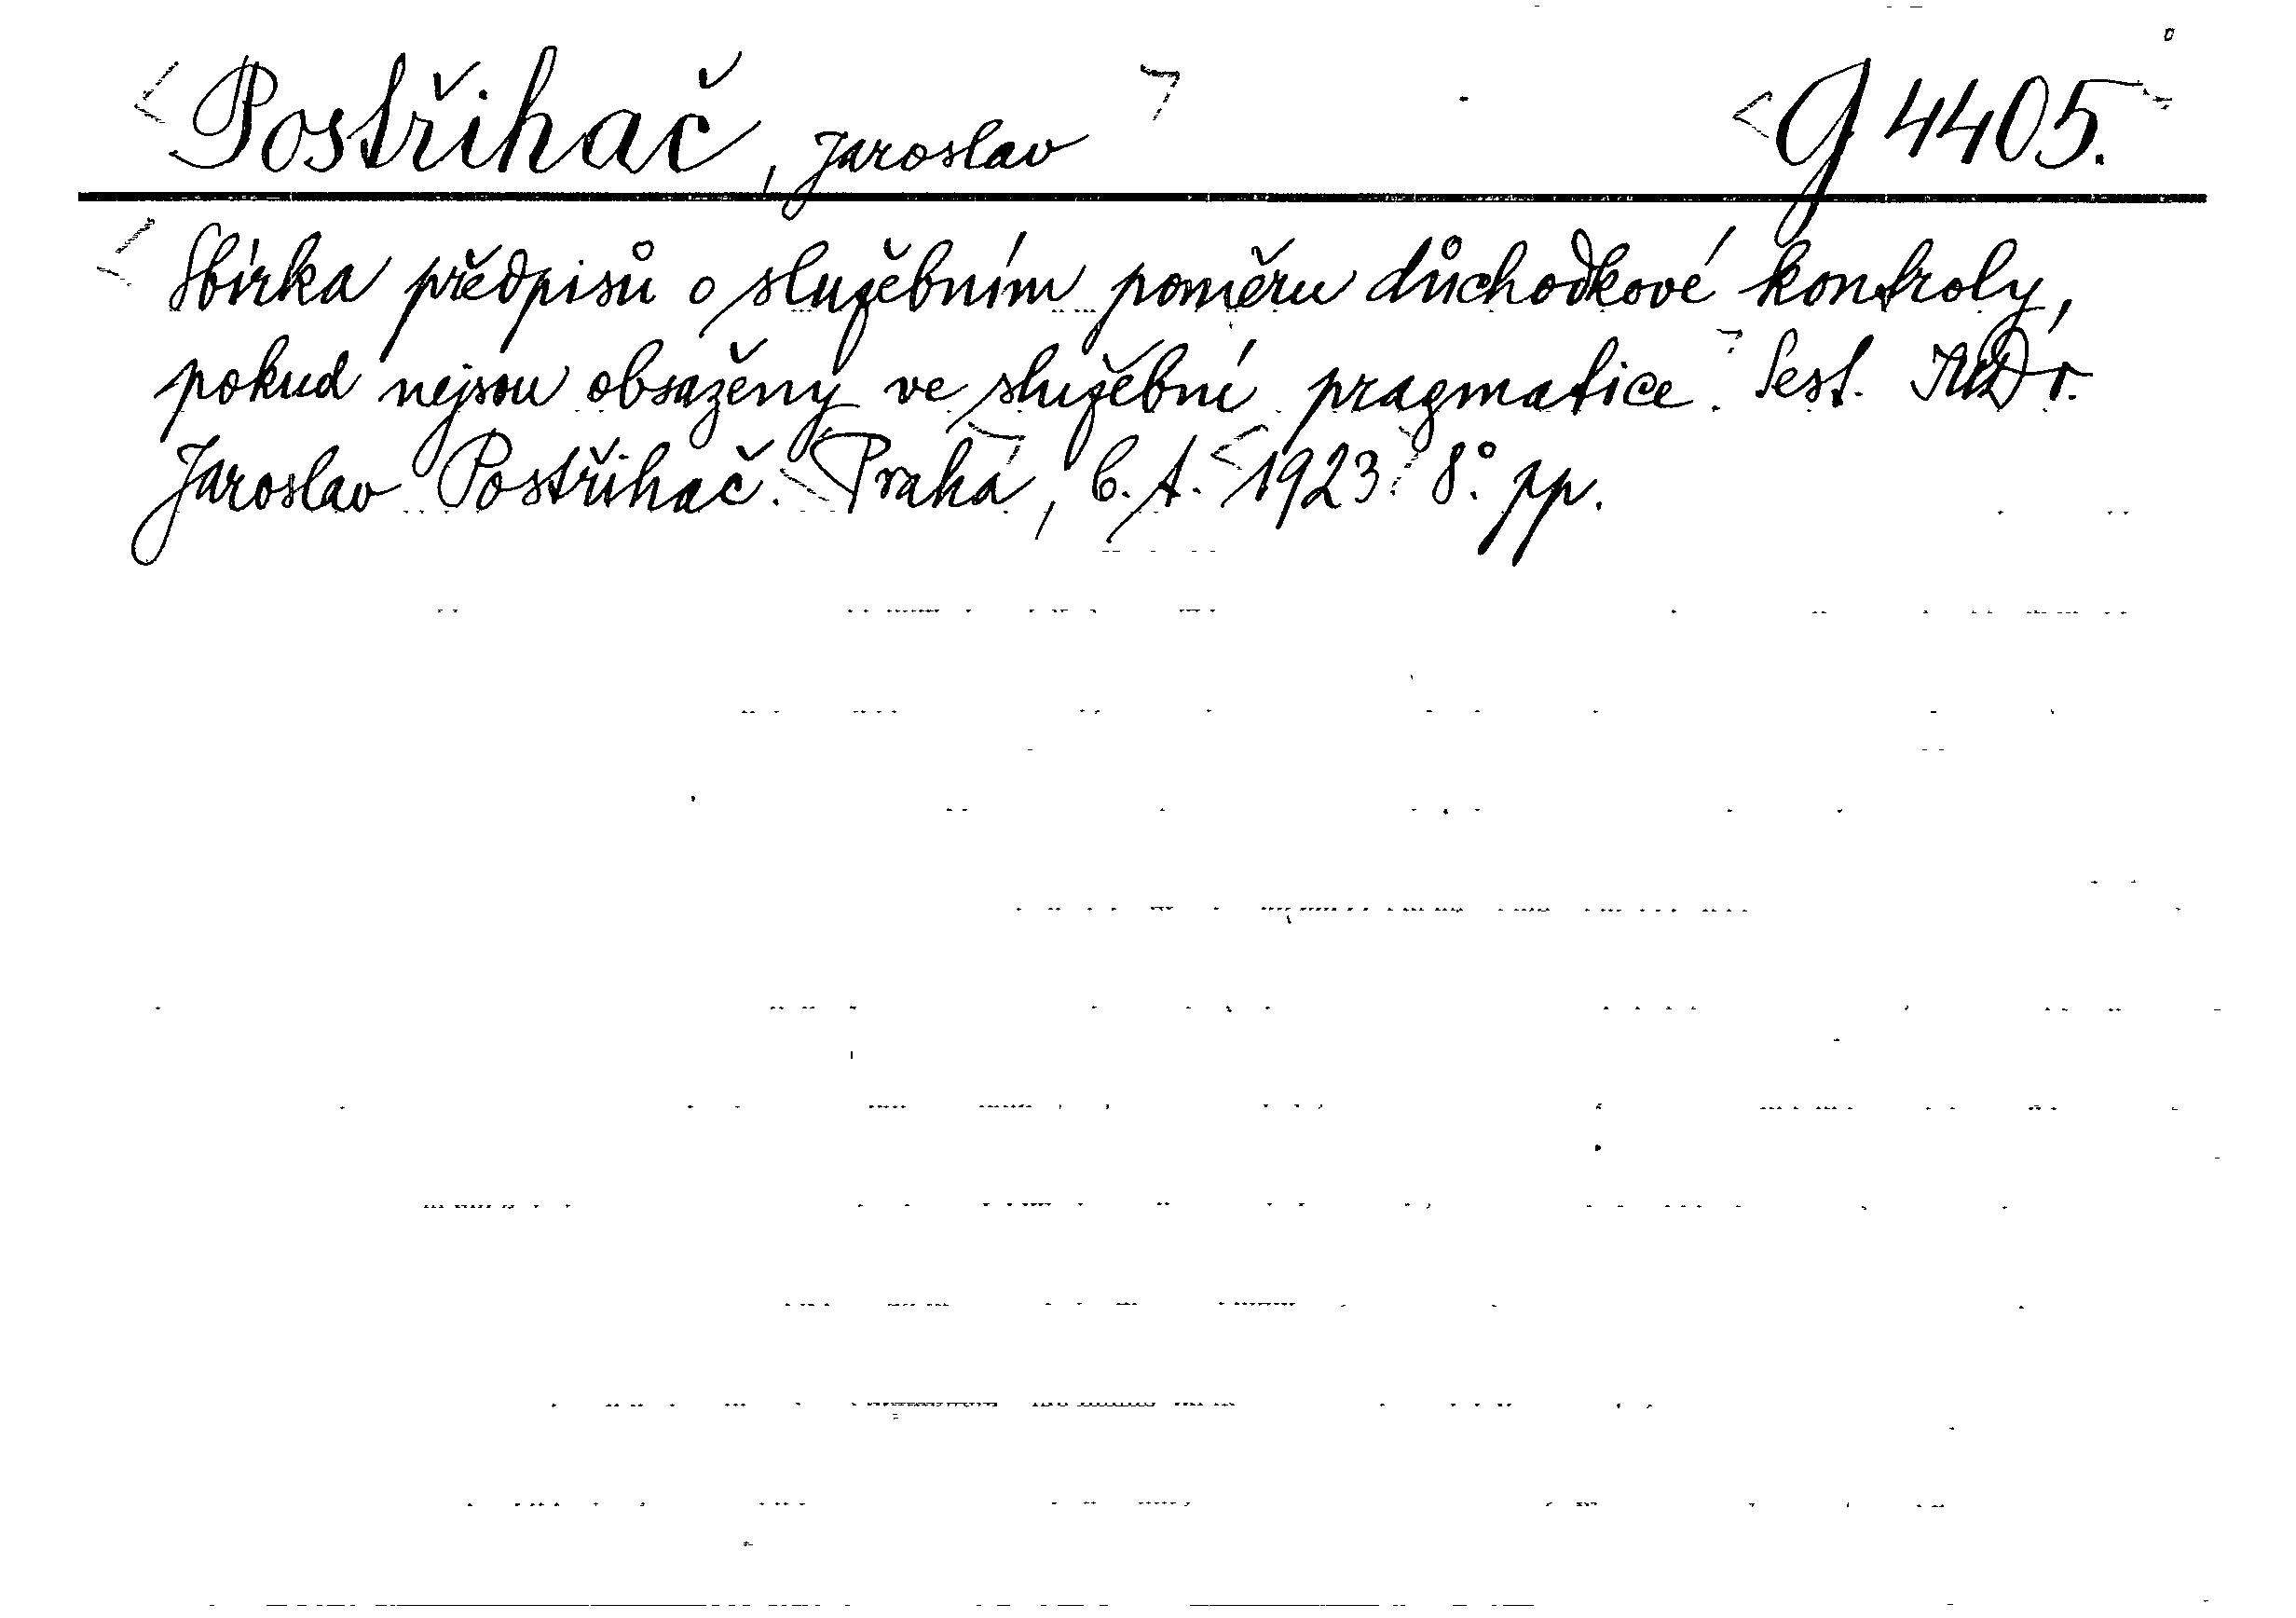 Postřihač, Jaroslav G 4405.
Sbírka předpisů o služebním poměru důchodkové kontroly,
pokud nejsou obsaženy ve služební pragmatice. Sest. JUDr.
Jaroslav Postřihač. Praha, b. t. 1923. 8°. pp.